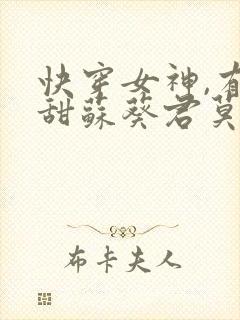 快穿女神,有
甜蘇葵君莫
布卡夫人